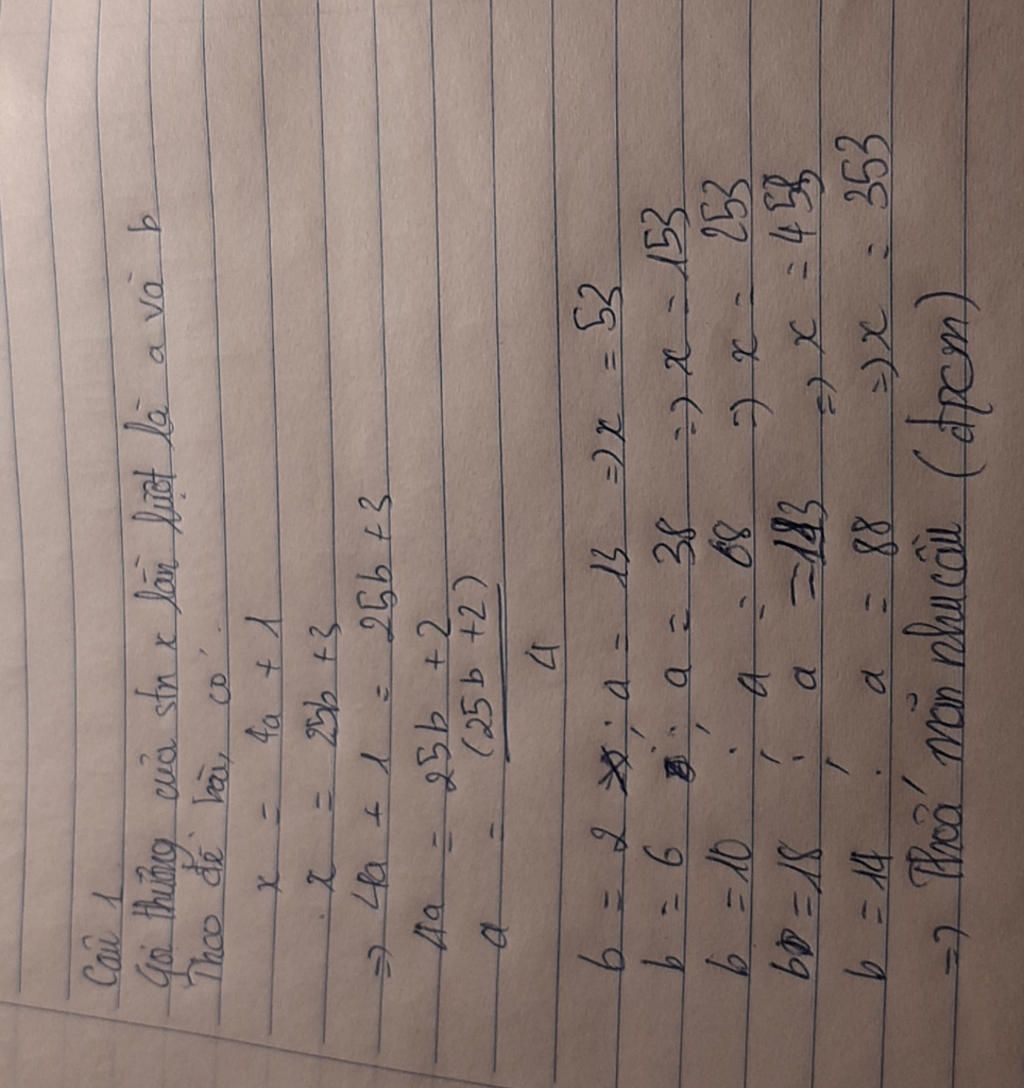 Câu 1
Gọi thương của stn x lần lượt là a và b
Theo đề bài, có
x = 4a + 1
x = 25b + 3
=> 4a + 1 = 25b + 3
4a = 25b + 2
a = (25b + 2)
4
b = 2 : a = 13 => x = 53
b = 6 : a = 38 => x = 153
b = 10 : a = 68 => x = 253
b = 18 : a = 113 => x = 453
b = 14 : a = 88 => x = 353
=> Thoả mãn nhu cầu (đpcm)